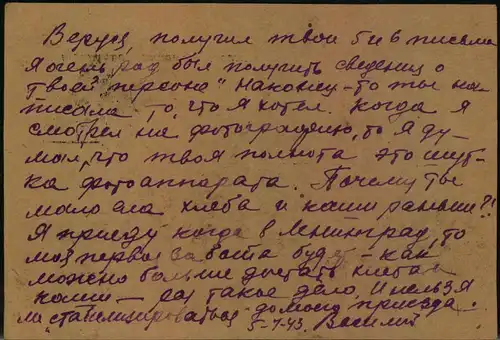 Веруся, получил твои 5 и 6 письма
Я очень рад был получить сведения о
твоей "персоне". Наконец-то ты на-
писала то, что я хотел. Когда я
смотрел на фотографию, то я ду-
мал, что твоя полнота это шут-
ка фотоаппарата. Почему ты
мало ела хлеба и каши раньше?!
Я приеду когда в Ленинград, то
моя первая забота будет - как
можно больше достать хлеба
каши — раз такое дело. И нельзя
ли "стабилизироваться" до моего приезда.
5-7-43. Василий